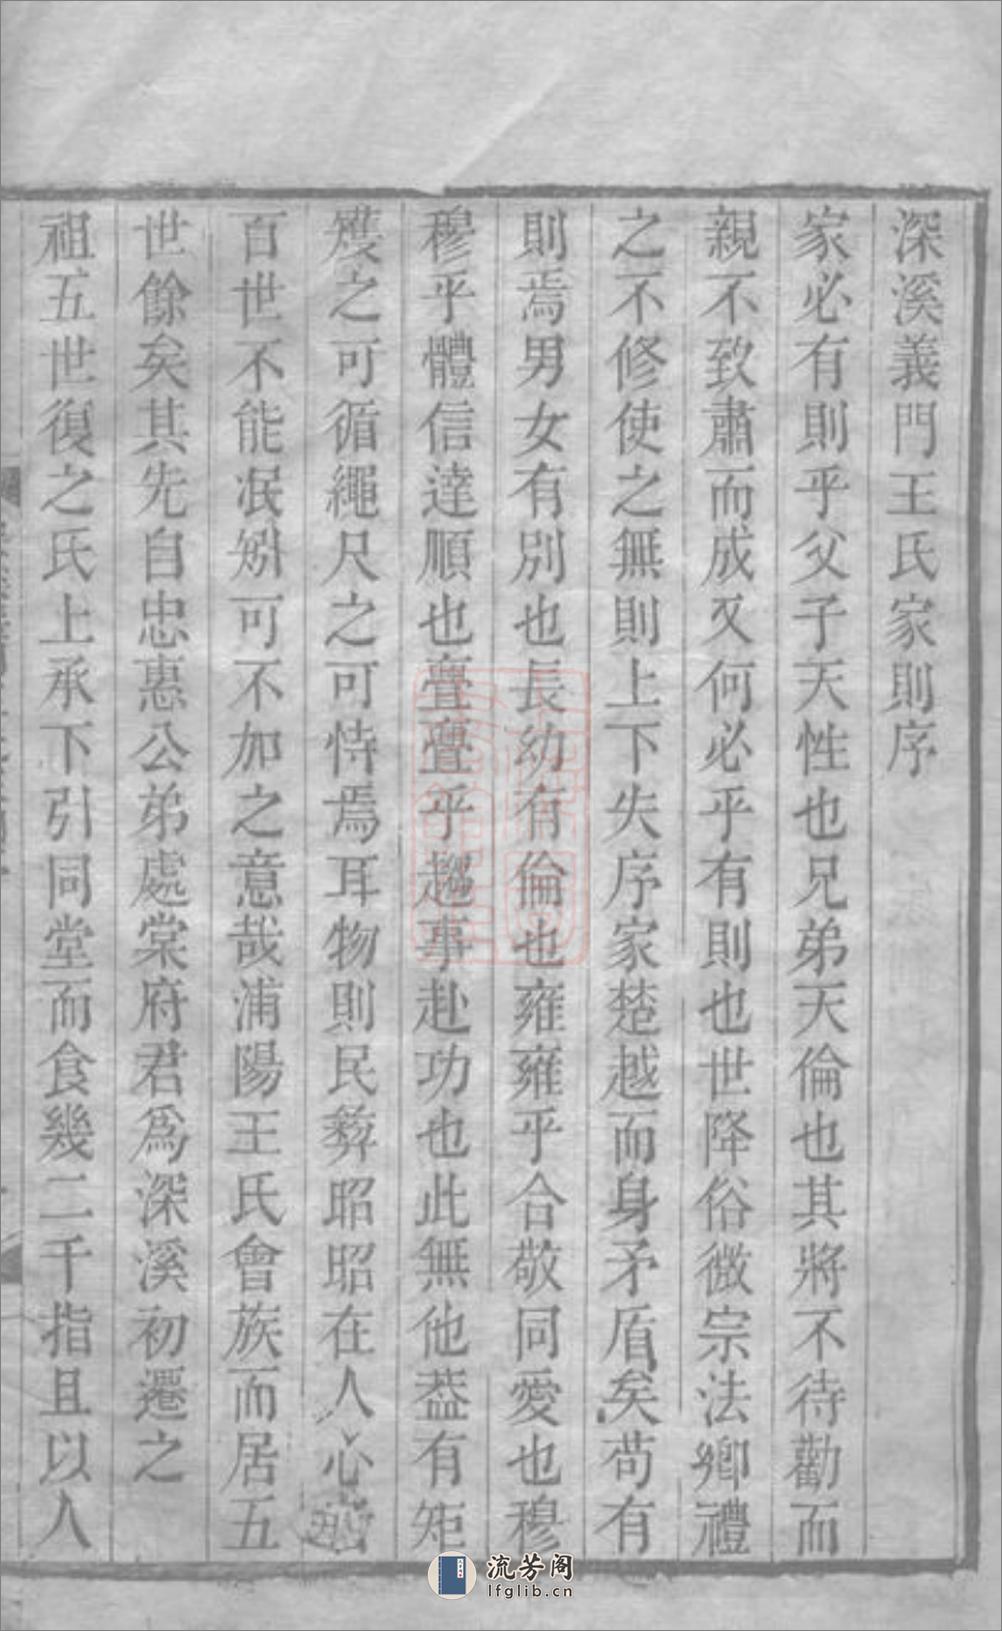 深溪義門王氏家則序
家必有則乎父子天性也兄弟天倫也其將不待勸而
親不致肅而成又何必乎有則也世降俗微宗法鄉禮
之不修使之無則上下失序家楚越而身矛盾矣苟有
則焉男女有別也長幼有倫也雍雍乎合敬同愛也穆
穆乎體信達順也亹亹乎趨事赴功也此無他葢有矩
矱之可循繩尺之可恃焉耳物則民彛昭昭在人心
百世不能泯矧可不加之意哉浦陽王氏會族而居五
世餘矣其先自忠惠公弟處棠府君爲深溪初遷之
祖五世復之氏上承下引同堂而食幾二千指且以人
流芳阁
lfglib.cn